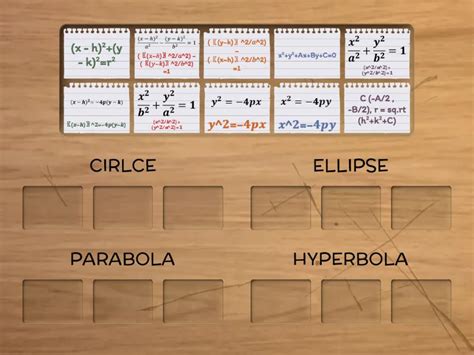 (x - h)²+(y
- k)²=r²
(x-h)²/a² - (y-k)²/b² = 1
( 〖(x-h)〗^2/a^2) -
( 〖(y-k)〗^2/b^2)
=1
( 〖(x-h)〗^2/a^2) -
( 〖(y-k)〗^2/b^2)
=1
x²+y²+Ax+By+C=0
x²/a² + y²/b² = 1
(x^2/a^2)+
(y^2/b^2)=1
(x-h)²=-4p(y-k)
〖(x-h)〗^2=-4p(y-k)
x²/b² + y²/a² = 1
(x^2/b^2)+
(y^2/a^2)=1
y²=-4px
y^2=-4px
x²=-4py
x^2=-4py
C (-A/2 ,
-B/2), r = sq.rt
(h²+k²+C)
CIRLCE
ELLIPSE
PARABOLA
HYPERBOLA